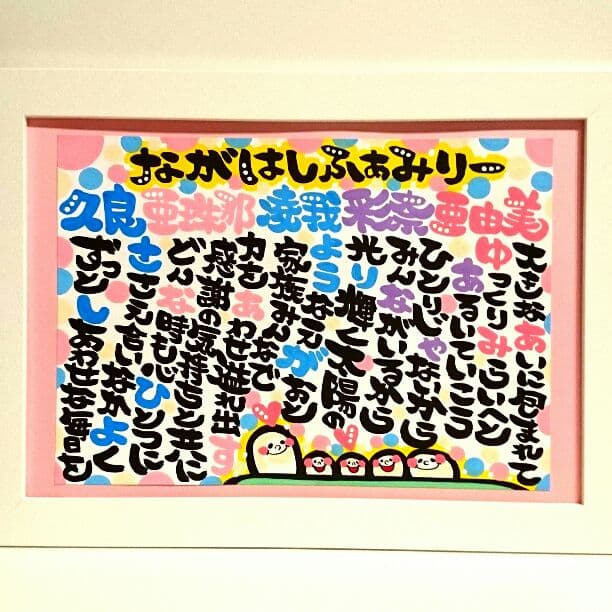 ながはしふぁみりー
久良 亜珠那 凌我 彩奈 亜由美
大きなあいに包まれて
ゆっくりみらいへと
あるいていこう
ひとりじゃないから
みんながいるから
光り輝く太陽の
ようなえがおと
家族みんなで
力をあわせ溢れ出す
感謝の気持ちと共に
どんな時も心ひとつに
ささえ合いなかよく
ずっとしあわせな毎日を